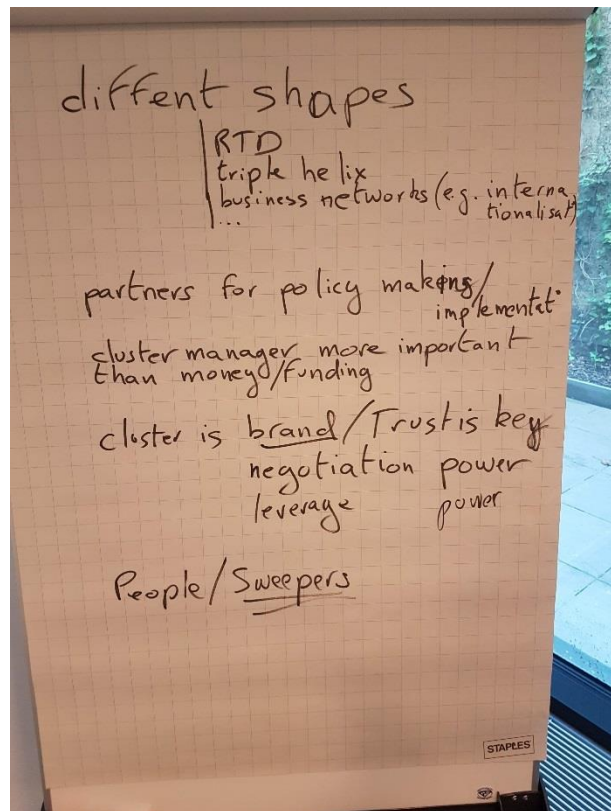 diffent shapes
RTD
triple helix
business networks (e.g. interna
tionalisat)
...
partners for policy making/
implementat.
cluster manager more important
than money/funding
cluster is brand/Trust is key
negotiation power
leverage power
People/Sweepers
STAPLES